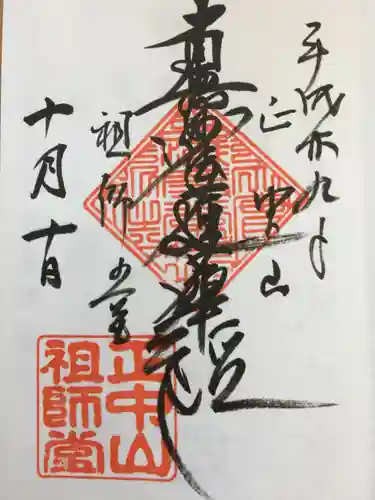 平成廿九年
正中山
南無妙法蓮華経
祖師堂
十月十日
正中山
祖師堂